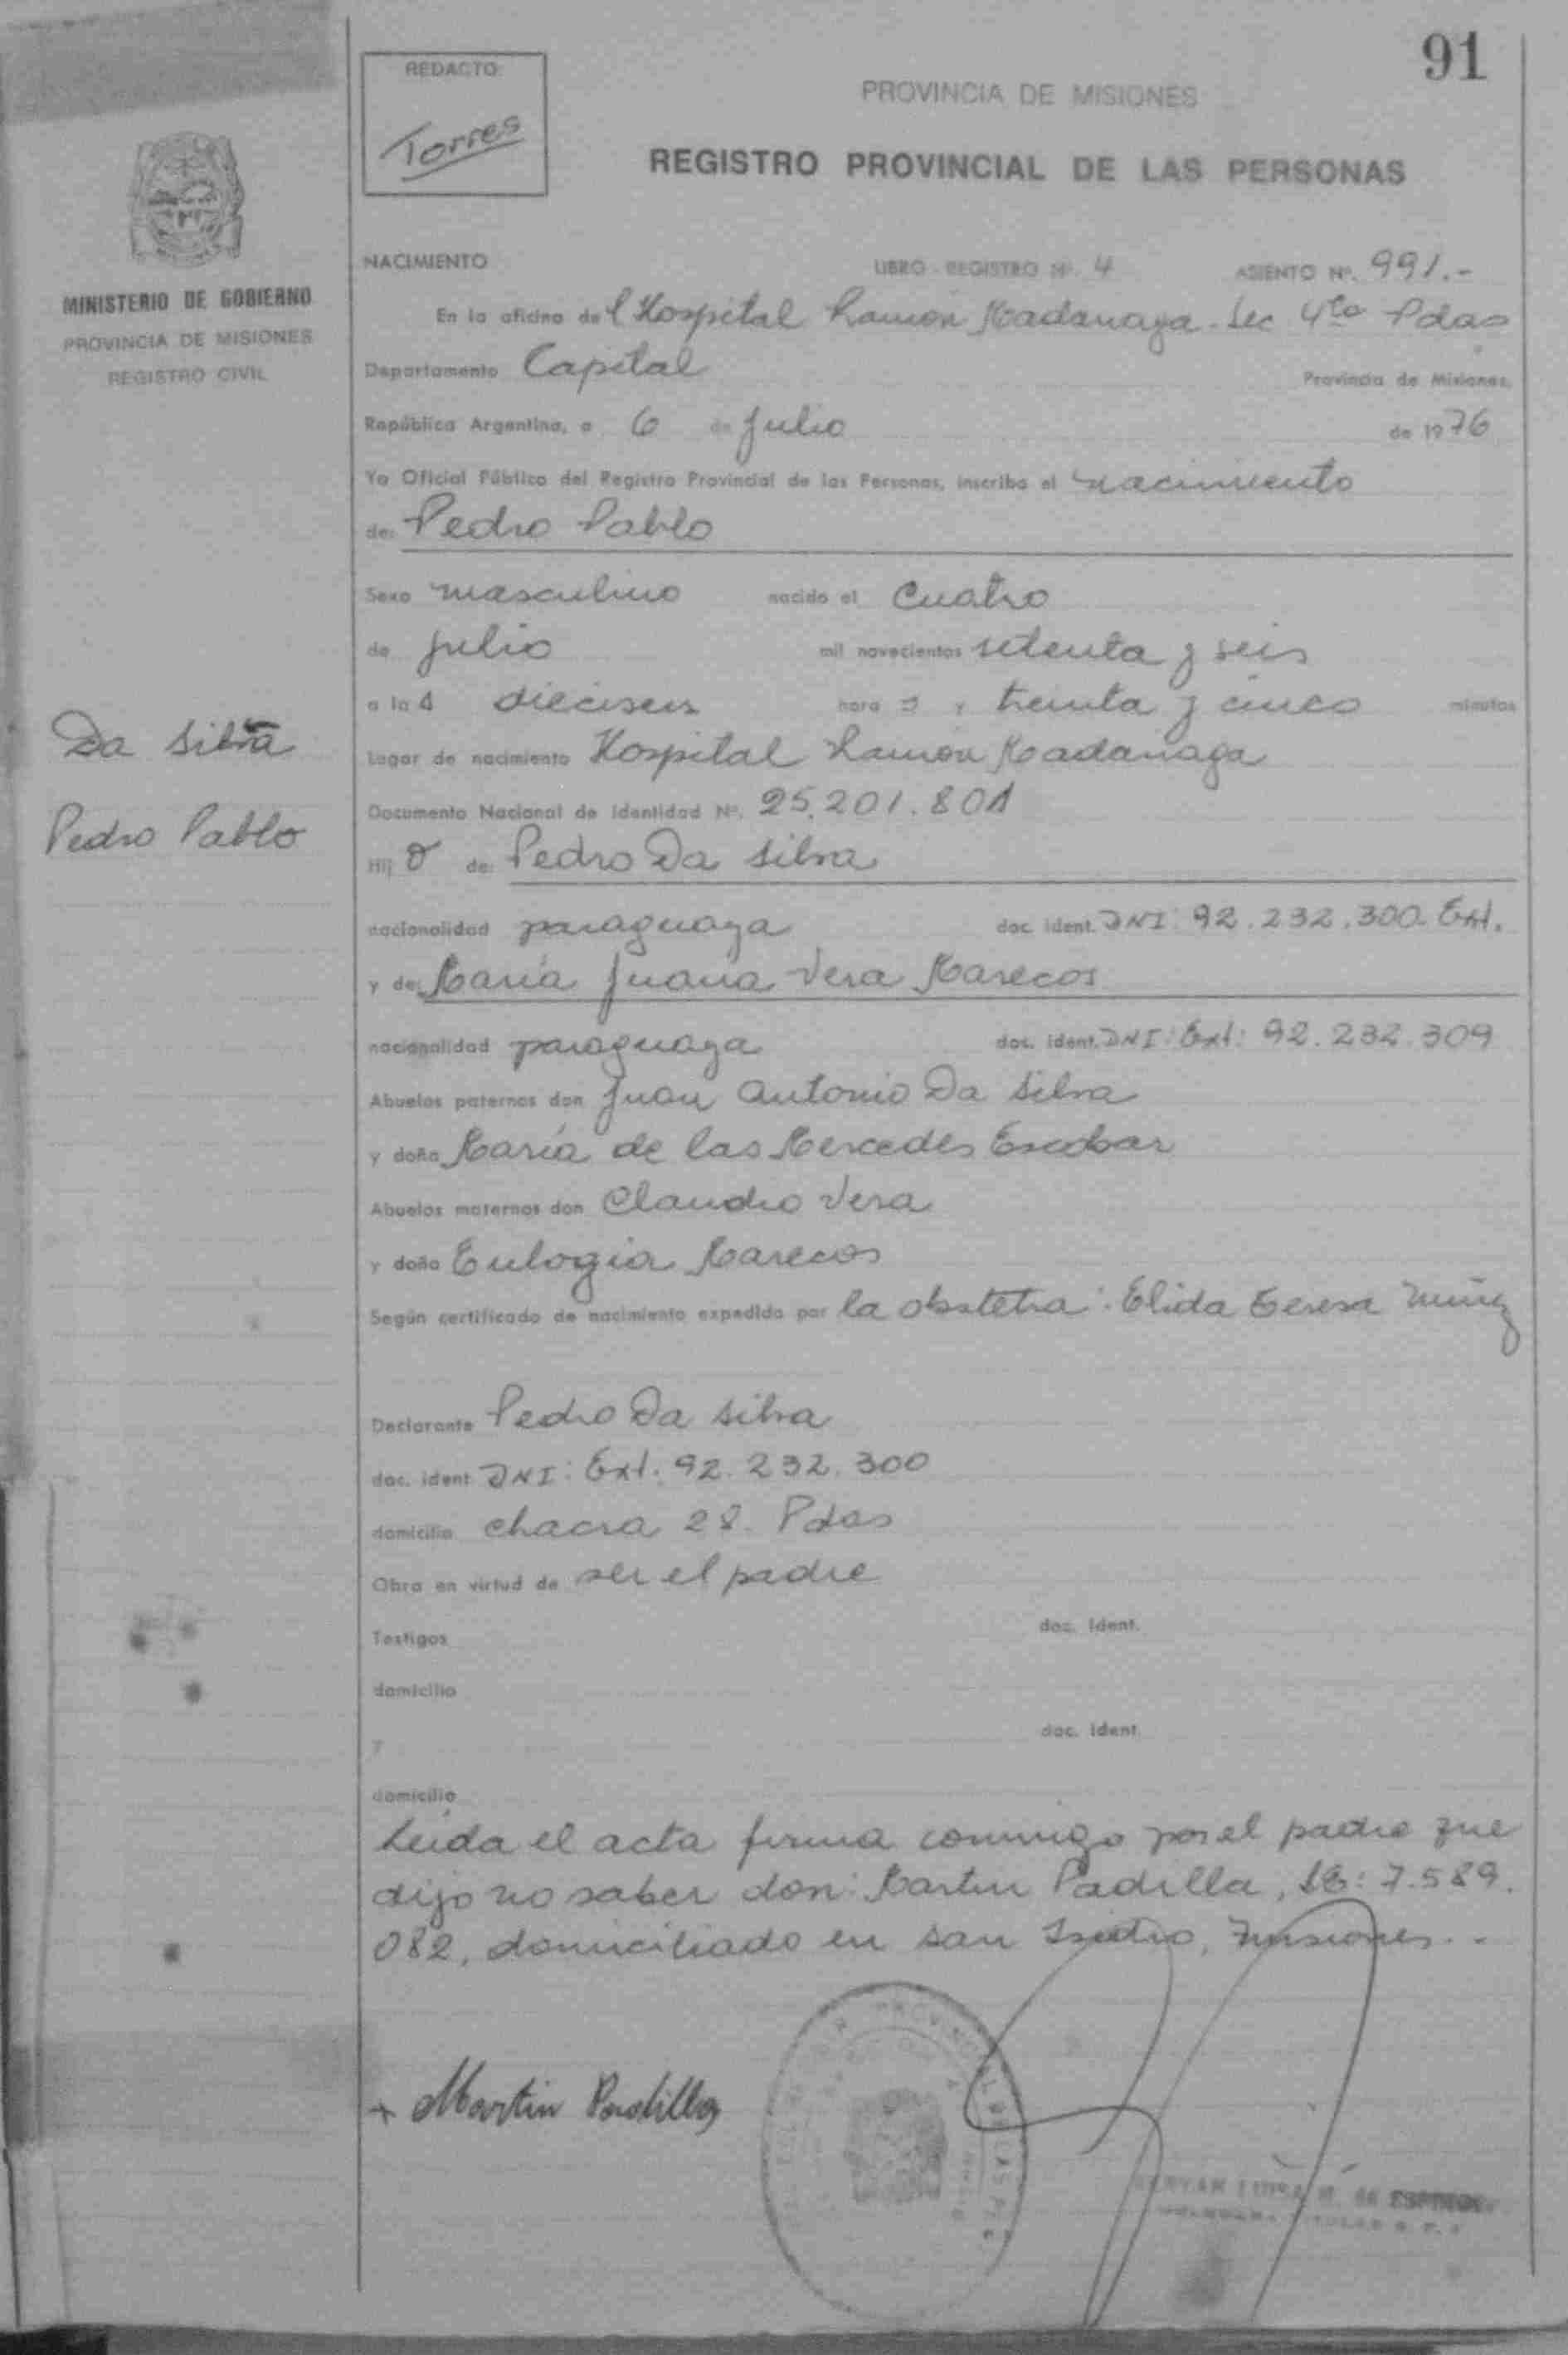 91
REDACTO:
Torres
PROVINCIA DE MISIONES
REGISTRO PROVINCIAL DE LAS PERSONAS
MINISTERIO DE GOBIERNO
PROVINCIA DE MISIONES
REGISTRO CIVIL
NACIMIENTO LIBRO - REGISTRO Nº. 4 ASIENTO Nº. 991.-
En la oficina del Hospital Ramón Madariaga - Sec 4ta Pdas
Departamento Capital Provincia de Misiones,
República Argentina, a 6 de Julio de 1976
Yo Oficial Público del Registro Provincial de las Personas, inscribo el nacimiento
de: Pedro Pablo
Sexo masculino nacido el cuatro
de julio mil novecientos setenta y seis
a las dieciseis horas y treinta y cinco minutos
Da Silva
Lugar de nacimiento Hospital Ramón Madariaga
Documento Nacional de Identidad Nº. 25.201.801
Pedro Pablo
Hijo de: Pedro Da Silva
nacionalidad paraguaya doc. ident. DNI: 92.232.300. Ext.
y de: María Juana Vera Marecos
nacionalidad paraguaya doc. ident. DNI: Ext: 92.232.309
Abuelos paternos don Juan Antonio Da Silva
y doña María de las Mercedes Escobar
Abuelos maternos don Claudio Vera
y doña Eulogia Marecos
Según certificado de nacimiento expedido por la obstetra: Elida Teresa
Declarante Pedro Da Silva
doc. ident DNI: Ext. 92.232.300
domicilio chacra 28. Pdas
Obra en virtud de ser el padre
Testigos doc. ident.
domicilio
y doc. ident.
domicilio
Leída el acta firma conmigo por el padre que
dijo no saber don: Martin Padilla, 7.589.
082, domiciliado en San Isidro, Misiones.-
Martin Padilla